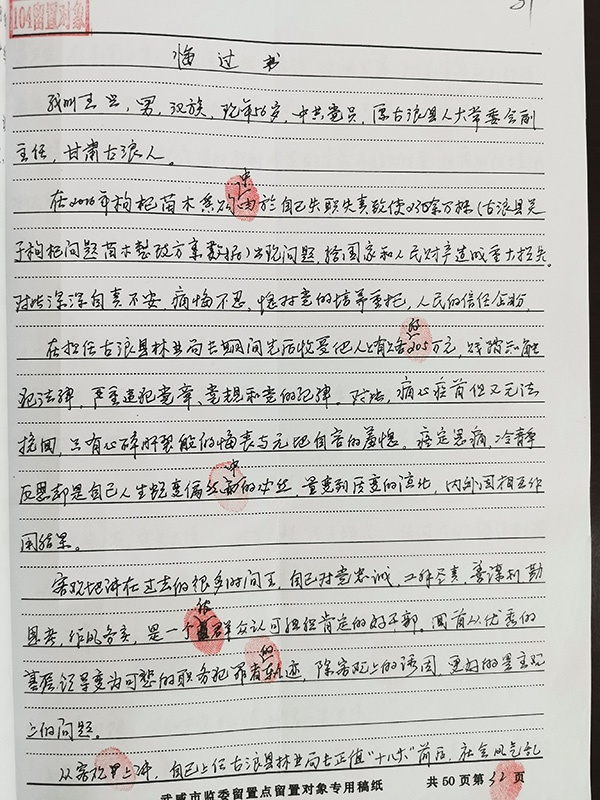 104留置对象
31
悔过书
我叫王兴，男，汉族，现年56岁，中共党员，原古浪县人大常委会副
主任，甘肃古浪人。
在2016年枸杞苗木采购中由於自己失职失责致使235余万株（古浪县关
于枸杞问题苗木整改方案数据）出现问题，给国家和人民财产造成重大损失。
对此深深自责不安，痛悔不忍，愧对党的培养重托，人民的信任企盼，
在担任古浪县林业局长期间先后收受他人的205万元，践踏和触
犯法律，严重违犯党章、党规和党的纪律。对此，痛心疾首但又无法
挽回，只有心碎肝裂般的悔丧与无地自容的羞愧。痛定思痛，冷静
反思却是自己人生蜕变偏中的必然，量变到质变的演化，内外因相互作
用结果。
客观地讲在过去的很多时间里，自己对党忠诚，工作尽责，善谋利勤
思考，作风务实，是一个被群众认可组织肯定的好干部。回首从优秀的
基层领导变为可憋的职务犯罪者的轨迹，除客观上的诱因，更多的是主观
上的问题。
从客观上讲，自己上任古浪县林业局长正值“十八大”前后，社会风气乱
武威市监委留置点留置对象专用稿纸 共50页第32页